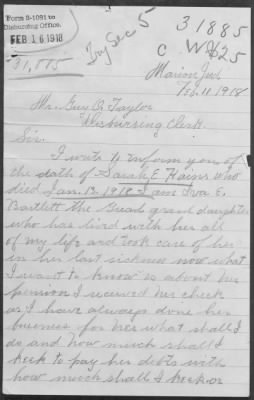 Form 3-1081 to
Disbursing Office,
FEB 16 1918
31885
C W 825
31,885
Marion Ind
Feb. 11 1918
Mr. Guy O. Taylor
Disbursing Clerk.
Sir.
I write to inform you of
the death of Sarah E. Hains who
died Jan. 13, 1918 I am Iva E.
Bartlett the Great grand daughter
who has lived with her all
of my life and took care of her
in her last sickness now what
I want to know is about her
pension I received her check
as I have always done her
business for her what shall I
do and how much shall I
keek to pay her debts with
how much shall I keek or